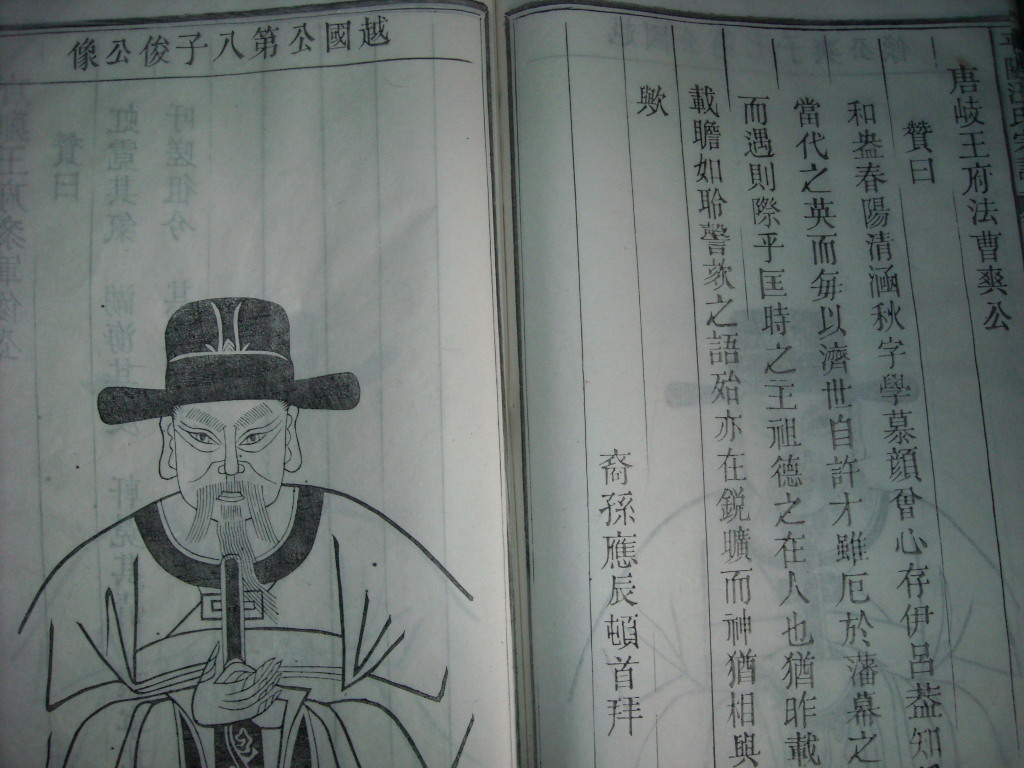 平陽汪氏宗譜
唐岐王府法曹爽公
贊曰
和盎春陽清涵秋字學慕顔曾心存伊呂葢知
當代之英而毎以濟世自許才雖厄於藩幕之
而遇則際乎匡時之主祖德之在人也猶昨載
載瞻如聆謦欬之語殆亦在鋭曠而神猶相與
歟
裔孫應辰頓首拜
越國公第八子俊公像